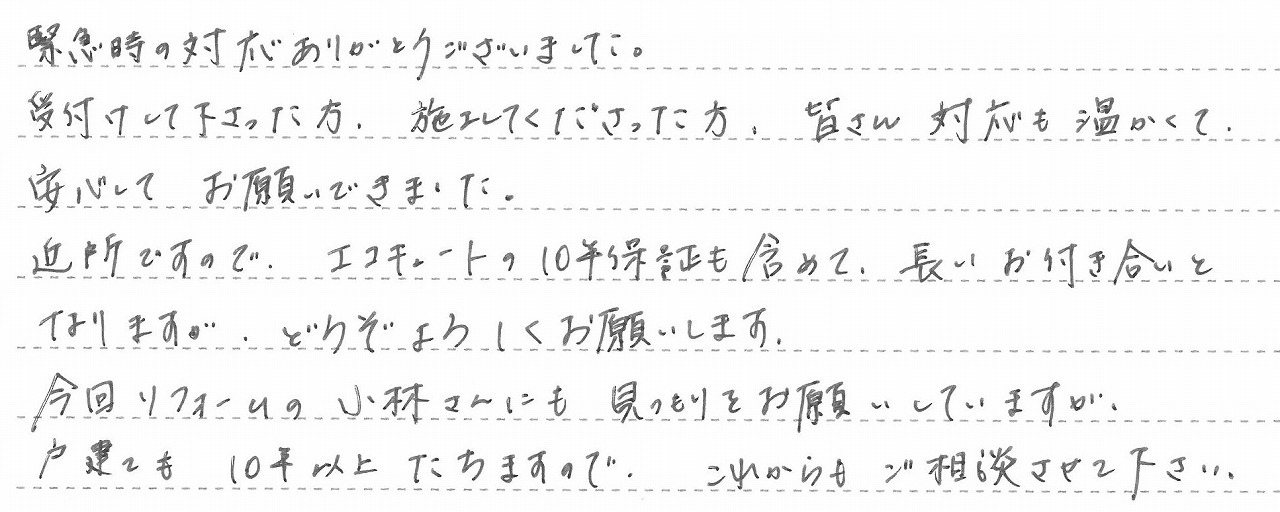 緊急時の対応ありがとうございました。
受付けして下さった方、施工してくださった方、皆さん対応も温かくて、
安心して お願いできました。
近所ですので、エコキュートの10年保証も含めて、長いお付き合いと
なりますが、どうぞよろしくお願いします。
今回リフォームの小林さんにも 見つもりをお願いしていますが、
戸建ても 10年以上 たちますので、 これからも ご相談させて下さい。